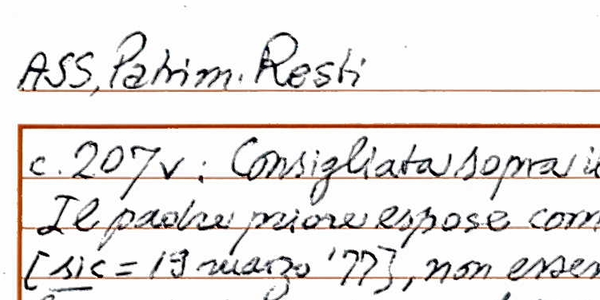 ASS, Patrim. Resti
c. 207v: Consigliata sopra il
Il padre priore espose com
[sic = 19 marzo '77], non essen